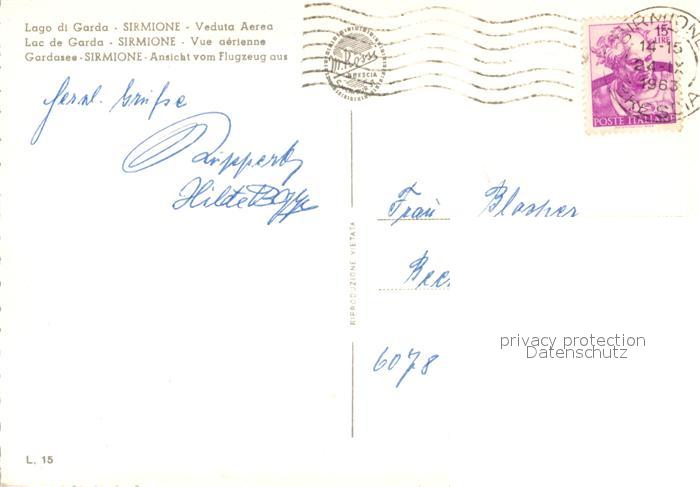 Lago di Garda - SIRMIONE - Veduta Aerea
Lac de Garda - SIRMIONE - Vue aérienne
Gardasee - SIRMIONE - Ansicht vom Flugzeug aus
BRESCIA
SIRMIONE
15 LIRE
14-15
1963
BRESCIA
POSTE ITALIANE
Herzl. Grüße
Hilde
Frau Blasher
6078
RIPRODUZIONE VIETATA
privacy protection
Datenschutz
L. 15